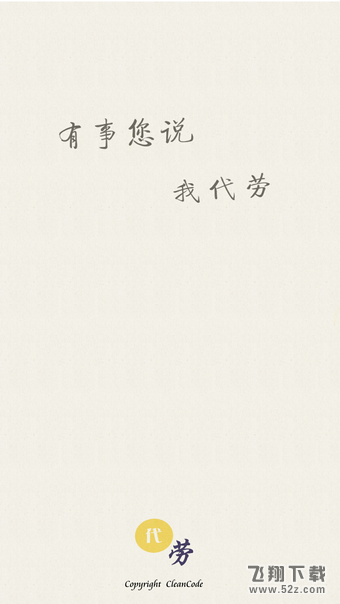 有事您说
我代劳
代
劳
Copyright CleanCode
飞翔下载
www.52z.com